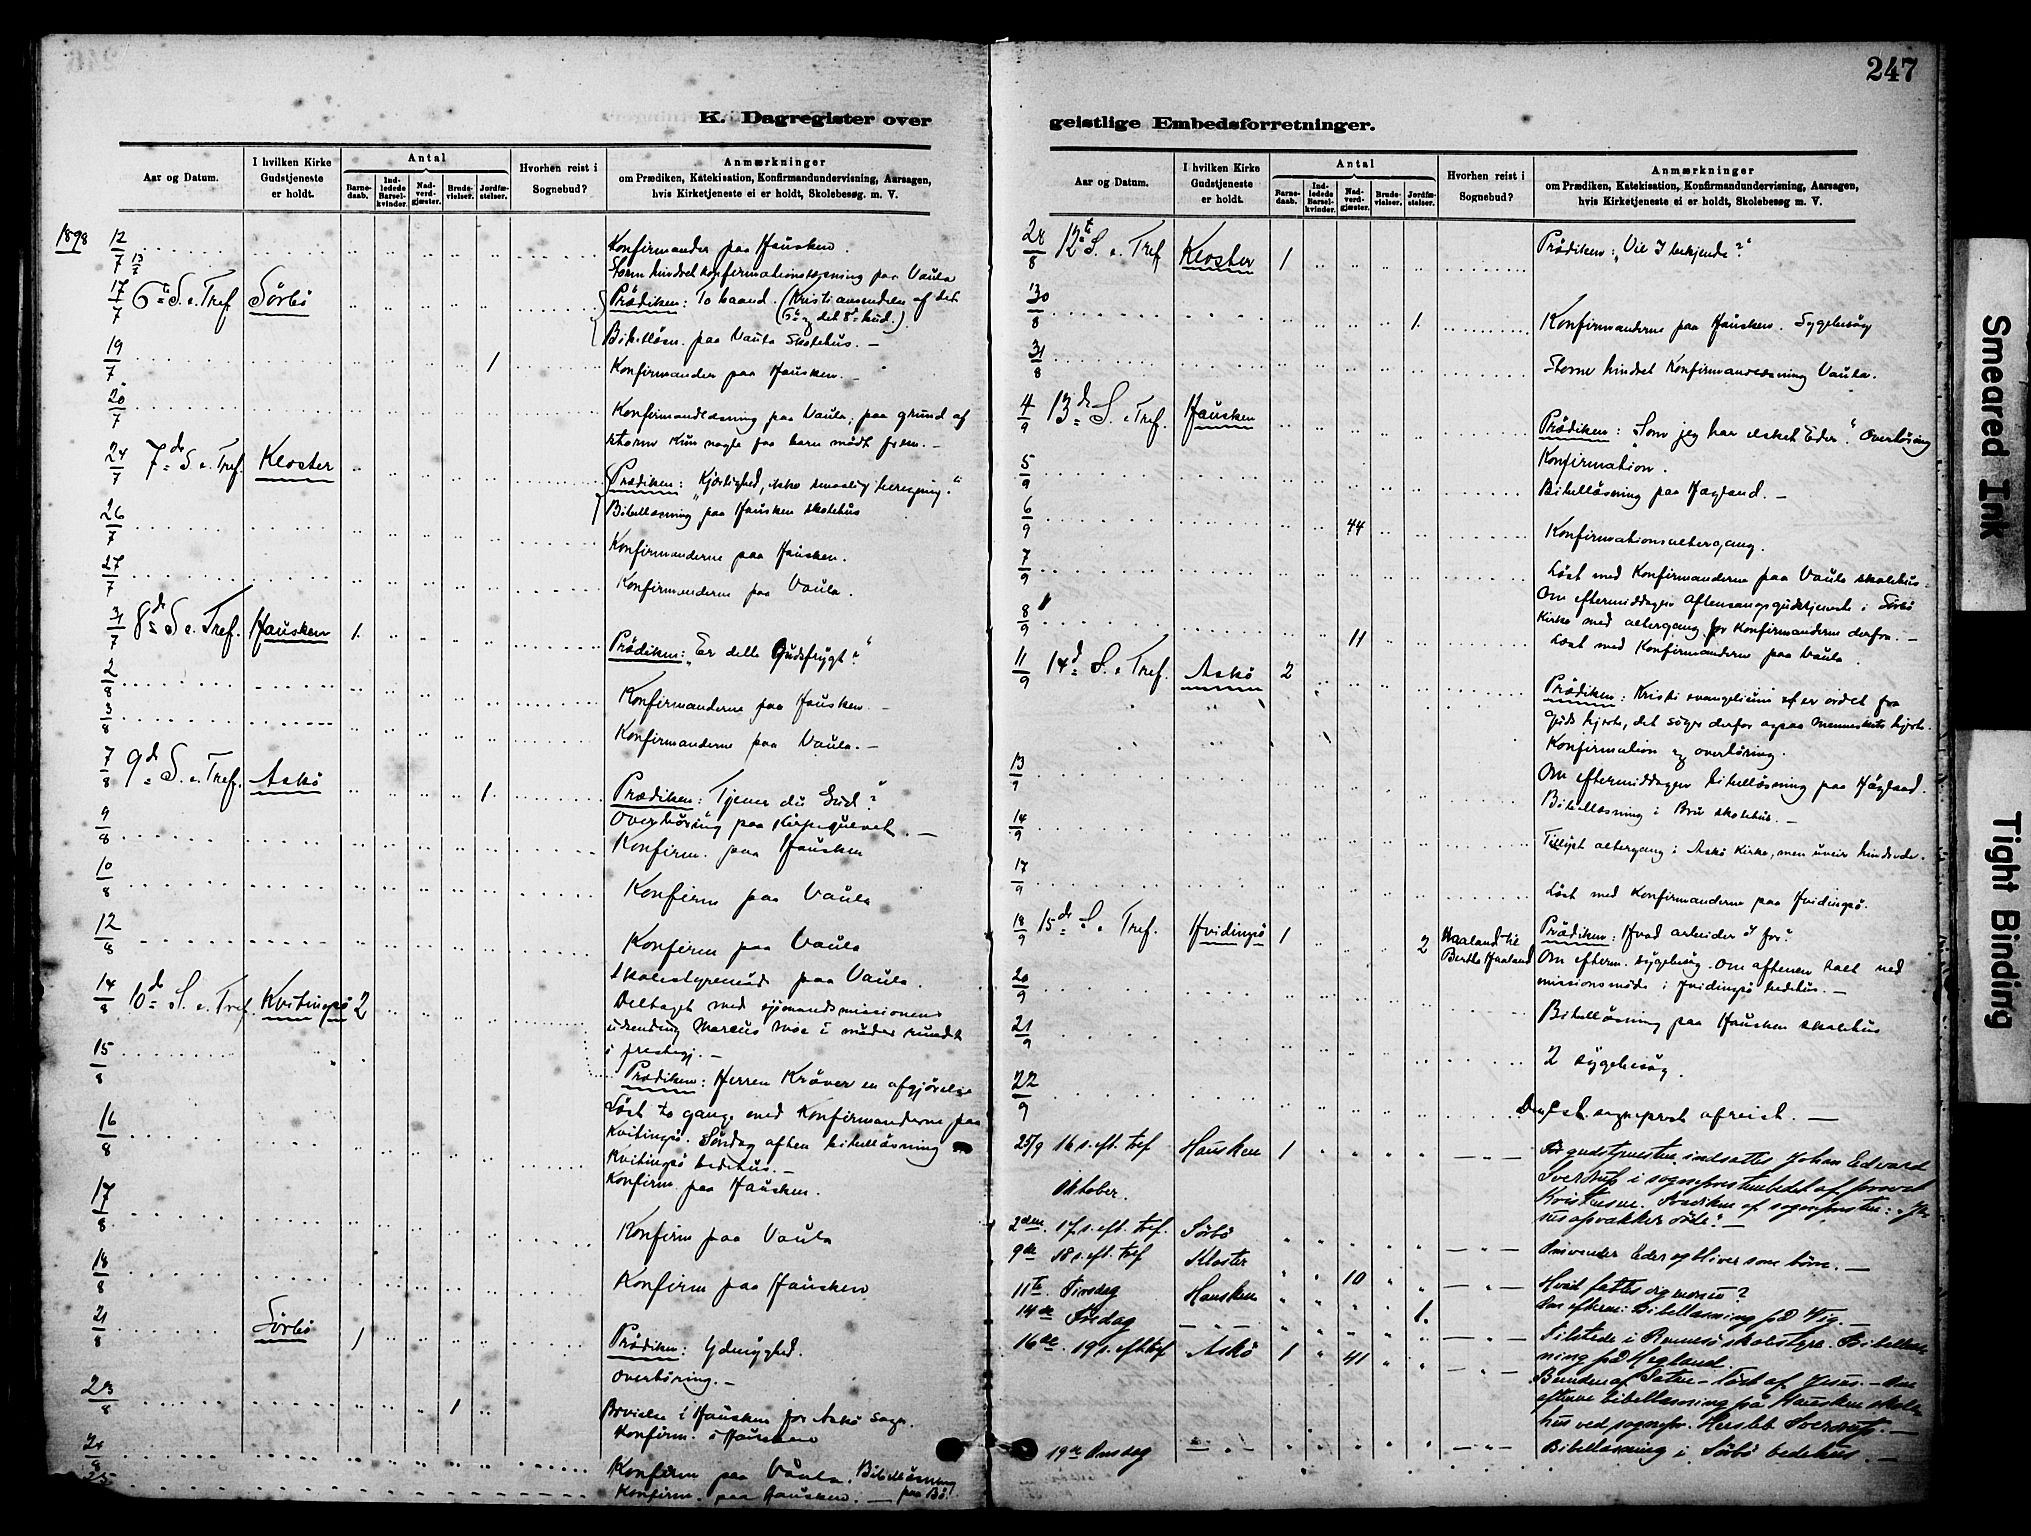 247
K. Dagregister over
geistlige Embedsforretninger.
Aar og Datum.
I hvilken Kirke
Gudstjeneste
er holdt.
Antal
Barne-
daab.
Ind-
ledede
Barsel-
kvinder.
Nad-
verd-
gjæster.
Brude-
vielser.
Jordfæ-
stelser.
Hvorhen reist i
Sognebud?
Anmærkninger
om Prædiken, Katekisation, Konfirmandundervisning, Aarsagen,
hvis Kirketjeneste ei er holdt, Skolebesøg m. V.
1898 12/7 Konfirmander paa Hausken.
13/7 Storm hindret konfirmationslæsning paa Vaula
17/7 6te S. e. Tref. Sörbö Prædiken: To baand. (Kristi anvendelse af det
6te og det 8de bud.)
Bibellæsn. paa Vaula Skolehus. —
19/7 1 Konfirmander paa Hausken. —
20/7 Konfirmandlæsning paa Vaula; paa grund af
storm kun nogle faa barn mödt frem. —
24/7 7de S. e. Tref. Kloster Prædiken: "Kjærlighed, ikke smaalig beregning."
Bibellæsning paa Hausken skolehus
26/7 Konfirmanderne paa Hausken.
27/7 Konfirmanderne paa Vaula.
31/7 8de S. e. Tref. Hausken 1. Prædiken: "Er dette Gudsfrygt?"
2/8 Konfirmanderne paa Hausken. —
3/8 Konfirmanderne paa Vaula. —
7/8 9de S. e. Tref. Askö 1. Prædiken: Tjener du Gud?
Overhöring paa —
9/8 Konfirm. paa Hausken
10/8 Konfirm paa Vaula
12/8 Konfirm paa Vaula
Skolestyremöde paa Vaula.
14/8 10de S. e. Tref. Kvitingsö 2 Deltaget med sjömandsmissionens
udsending Marcus Moe i möder rundt
i prestegj. —
15/8 Prædiken: Herren Kræver en afgjörelse
Læst to gange med Konfirmanderne paa
Kvitingsö. Söndag aften bibellæsning
Kvitingsö bedehus. —
16/8 Konfirm. paa Hausken.
17/8 Konfirm paa Vaula
18/8 Konfirm paa Hausken
21/8 Sörbö 1 Prædiken: Ydmyghed.
Overhöring. —
23/8 1 Brvielse i Hausken for Askö sogn.
Konfirm. i Hausken
24/8 Konfirm paa Vaula. Bibellæsning
paa Bö.
25 Konfirm. paa Hausken. —
28/8 12te S. e. Tref Kloster 1 Prædiken: "Vil I bekjende?"
30/8 1. Konfirmanderne paa Hausken. Sygebesög
31/8 Storm hindret Konfirmandlæsning Vaula.
4/9 13de S. e. Tref. Hausken Prædiken: "Som jeg har elsket Eder." Overhöring
Konfirmation.
5/9 Bibellæsning paa Hægland. —
6/9 44 Konfirmationsaltergang.
7/9 Læst med Konfirmanderne paa Vaula skolehus
Om eftermiddagen Aftensangsgudstjeneste i Sörbö
8/9 11 Kirke med altergang for Konfirmanderne derfra. —
Læst med Konfirmanderne paa Vaula.
11/9 14d S. e. Tref. Askö 2 Prædiken: Kristi evangelium er ordet fra
Guds hjerte, det söger derfor ogsaa menneskets hjerte.
Konfirmation og overhöring.
Om eftermiddagen bibellæsning paa Hægland.
13/9 Bibellæsning i Bru skolehus. —
14/9 Tillyst altergang i Askö Kirke, men uveir hindrede.
17/9 Læst med Konfirmanderne paa Hvidingsö.
18/9 15de S. e. Tref. Hvidingsö 1 2 Haaland til
Berthe Haaland Prædiken: Hvad arbeider I for?
Om efterm. sygebesög. Om aftenen talt ved
missionsmöde i Hvidingsö bedehus. —
20/9 Bibellæsning paa Hausken skolehus
21/9 2 sygebesög.
22/9 Den sogneprest afreist. —
25/9 16 s. eft. tref Hausken 1 Før gudstjenesten indsattes Johan Edvard
Sverdrup i sogneprestembedet af provst
Prædiken af sognepresten:
Oktober.
2den 17. s. eft. tref. Sörbö Omvender Eder og bliver som børn. —
9de 18 s. eft. tref Kloster 10 Hvad fattes dig
11te Tirsdag Hausken Om efterm: Bibellæsning på Vig. —
14de Fredag 1. Tilstede i Rennesö skolestyre. Bibellæs-
ning på Hegland.
16de 19 s. eft. tref Askö 1 41 Bunden af Satan — løst af Jesus. — Om
efterm. bibellæsning på Hausken skole-
hus ved sognepr. Sverdrup. —
19de Onsdag Bibellæsning i Sörbö bedehus. —
Smeared Ink
Tight Binding